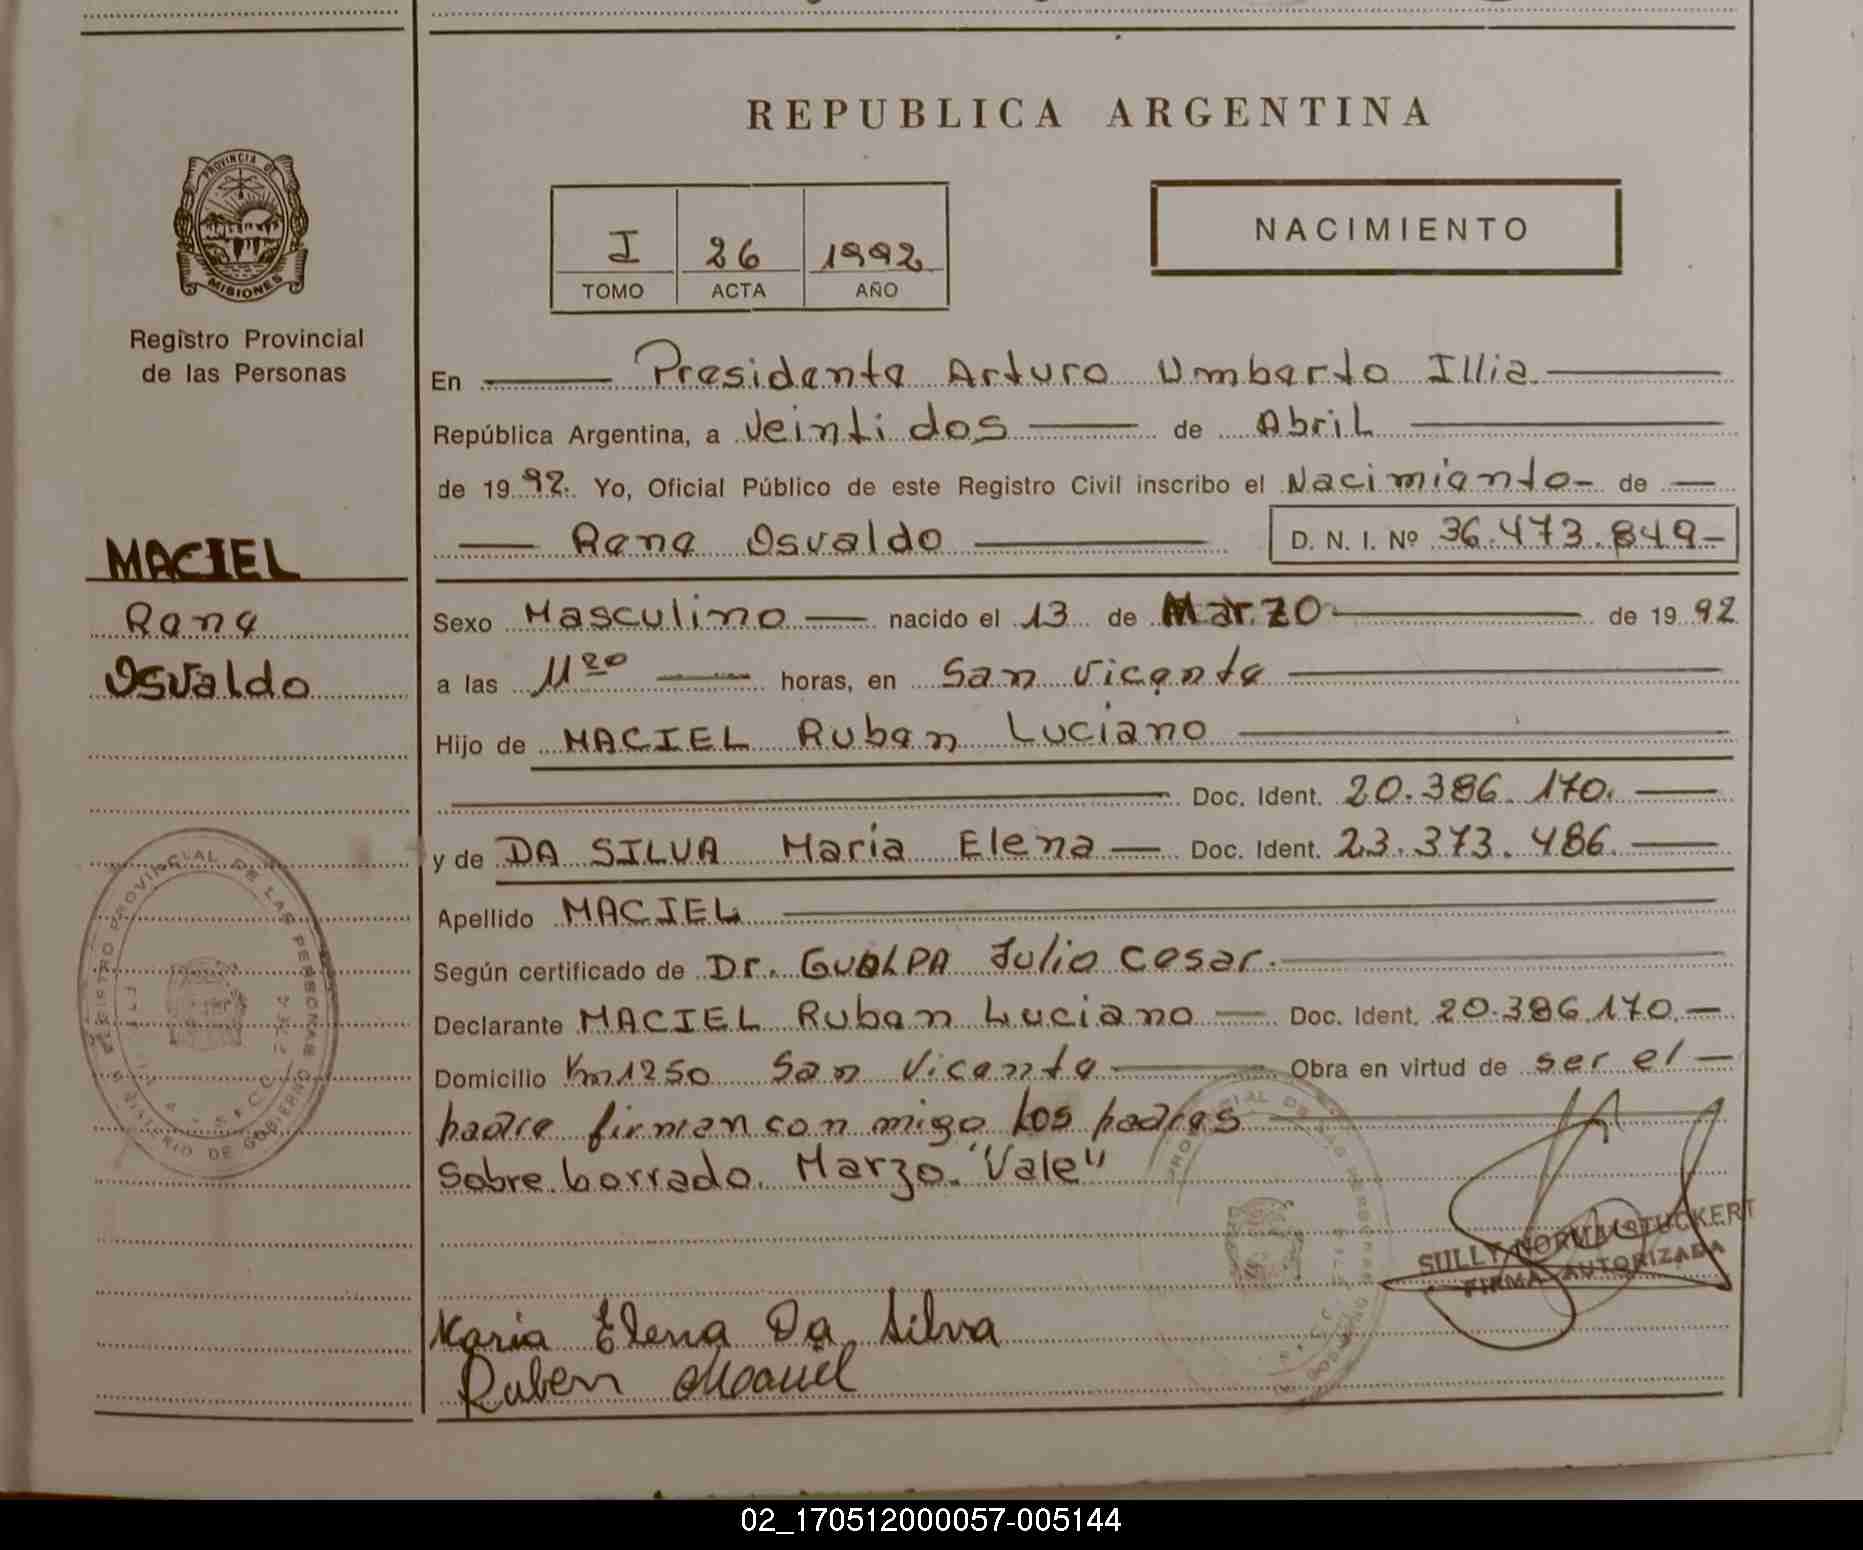 REPUBLICA ARGENTINA
PROVINCIA DE
MISIONES
Registro Provincial
de las Personas
I 26 1992
TOMO ACTA AÑO
NACIMIENTO
En Presidente Arturo Umberto Illia
República Argentina, a veintidos de Abril
de 1992. Yo, Oficial Público de este Registro Civil inscribo el Nacimiento de
Rene Osvaldo D. N. I. Nº 36.473.849
MACIEL
Rene
Osvaldo
Sexo Masculino nacido el 13 de Marzo de 1992
a las 11²⁰ horas, en San Vicente
Hijo de MACIEL Ruben Luciano
Doc. Ident. 20.386.170.
y de DA SILVA Maria Elena Doc. Ident. 23.373.486.
Apellido MACIEL
Según certificado de Dr. GUOLPA Julio Cesar.
Declarante MACIEL Ruben Luciano Doc. Ident. 20.386.170.
Domicilio Km 1250 San Vicente Obra en virtud de ser el
padre firman con migo los padres
Sobre borrado. Marzo. "Vale"
REGISTRO PROVINCIAL DE LAS PERSONAS
MINISTERIO DE GOBIERNO
SULLY NORMA STUCKERT
FIRMA AUTORIZADA
Maria Elena Da Silva
Ruben Maciel
02_170512000057-005144